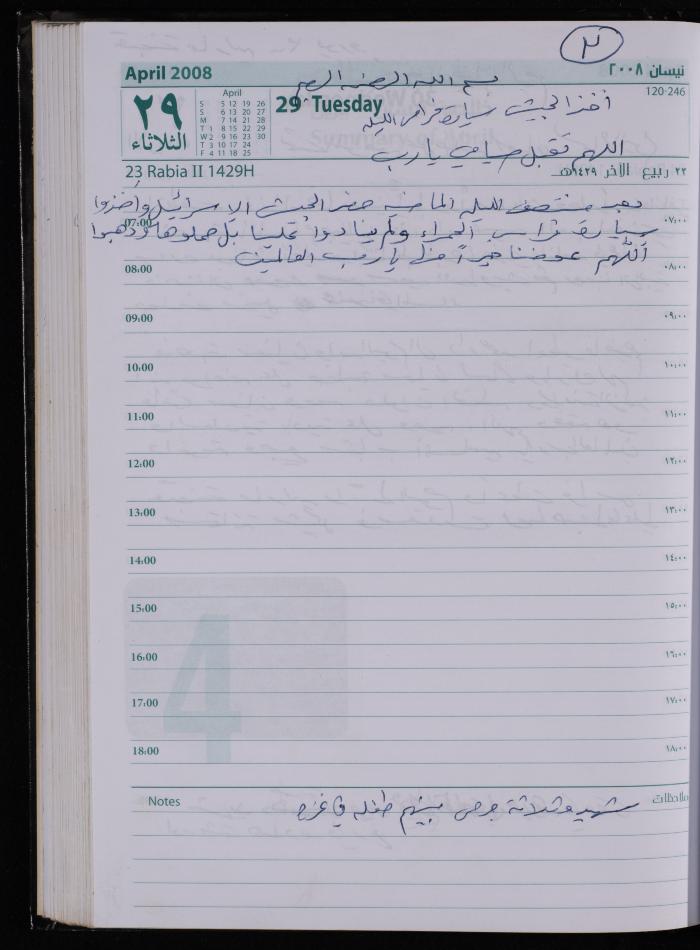 ٢
April 2008
نيسان ٢٠٠٨
بسم الله الرحمن الرحيم
120-246
٢٩
الثلاثاء
April
S 5 12 19 26
S 6 13 20 27
M 7 14 21 28
T 1 8 15 22 29
W 2 9 16 23 30
T 3 10 17 24
F 4 11 18 25
29 Tuesday
أخذ الجيش سيارة فراس الليلة
اللهم تقبل صيامي يا رب
23 Rabia II 1429H
٢٣ ربيع الآخر ١٤٢٩هـ
بعد منتصف الليلة الماضية حضر الجيش الإسرائيلي وأخذوا
07:00
٠٧:٠٠
سيارة فراس الحمراء ولم ينادوا علينا بل حملوها وذهبوا
اللهم عوضنا خيراً منها يا رب العالمين
08:00
٠٨:٠٠
09:00
٠٩:٠٠
10:00
١٠:٠٠
11:00
١١:٠٠
12:00
١٢:٠٠
13:00
١٣:٠٠
14:00
١٤:٠٠
15:00
١٥:٠٠
16:00
١٦:٠٠
17:00
١٧:٠٠
18:00
١٨:٠٠
4
Notes
ملاحظات
شهيد وثلاثة جرحى بينهم طفلة في غزة